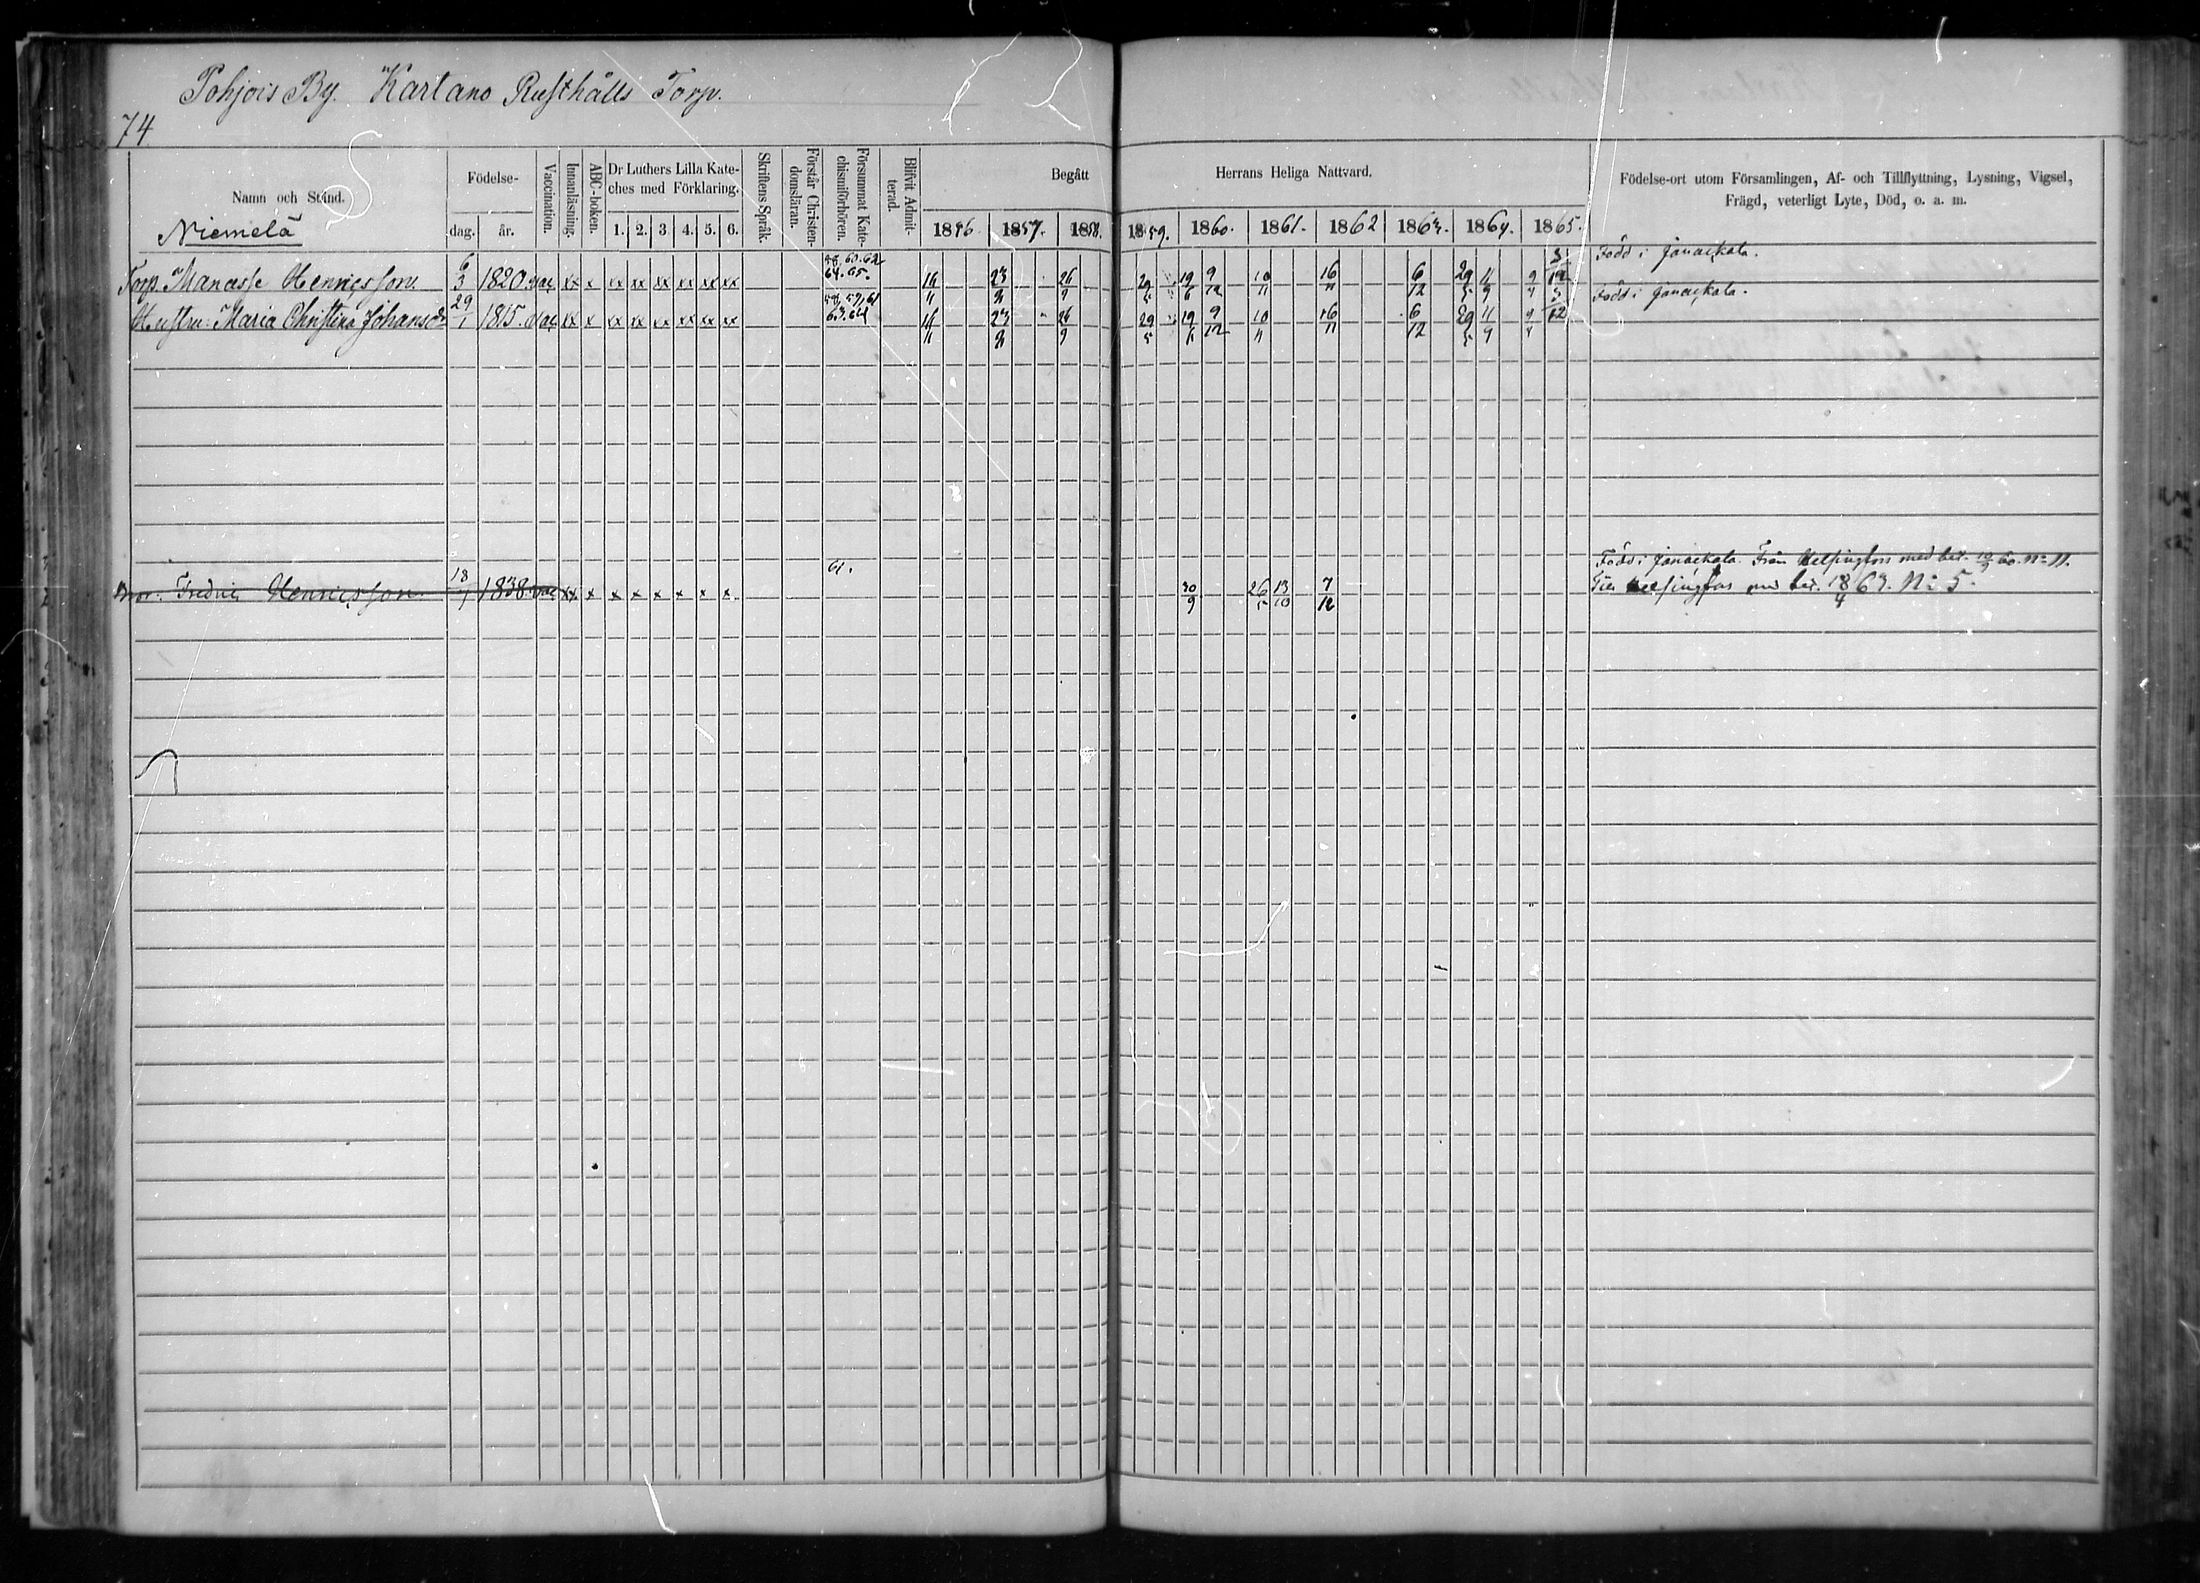 Pohjois By. Kartano Rusthålls Torp.
74
Namn och Stånd.
Födelse-
dag. år.
Vaccination.
Innanläsning.
ABC-boken.
Dr Luthers Lilla Kate-
ches med Förklaring.
1. 2. 3 4. 5. 6.
Skriftens Språk.
Förstår Christen-
domsläran.
Försummat Kate-
chismiförhören.
Blifvit Admit-
terad.
Begått Herrans Heliga Nattvard.
1856. 1857. 1858. 1859. 1860. 1861. 1862 1863. 1864. 1865.
Födelse-ort utom Församlingen, Af- och Tillflyttning, Lysning, Vigsel,
Frägd, veterligt Lyte, Död, o. a. m.
Niemelä
Torp. Manasse Henricsson. 6/3 1820. vac xx x xx xx xx xx xx xx 64. 65. 16/11 23/9 26/9 29/5 19/6 9/12 10/11 16/11 6/12 29/5 11/9 9/4 3/12 Född i Janackala.
Hustru: Maria Christina Johansdr 29/1 1815. vac xx x xx xx xx xx xx xx 58, 59, 61 63. 64 16/11 23/9 26/9 29/5 19/6 9/12 10/11 16/11 6/12 29/5 11/9 9/4 3/12 Född i Janackala.
Bror: Fredric Henricsson. 18/7 1838. vac xx x x x x x x x 61. 30/9 26/5 13/10 7/12 Född i Janackala. Från Helsingfors med bet. 60. No 11.
Till Helsingfors med bet. 18/4 63. No 5.